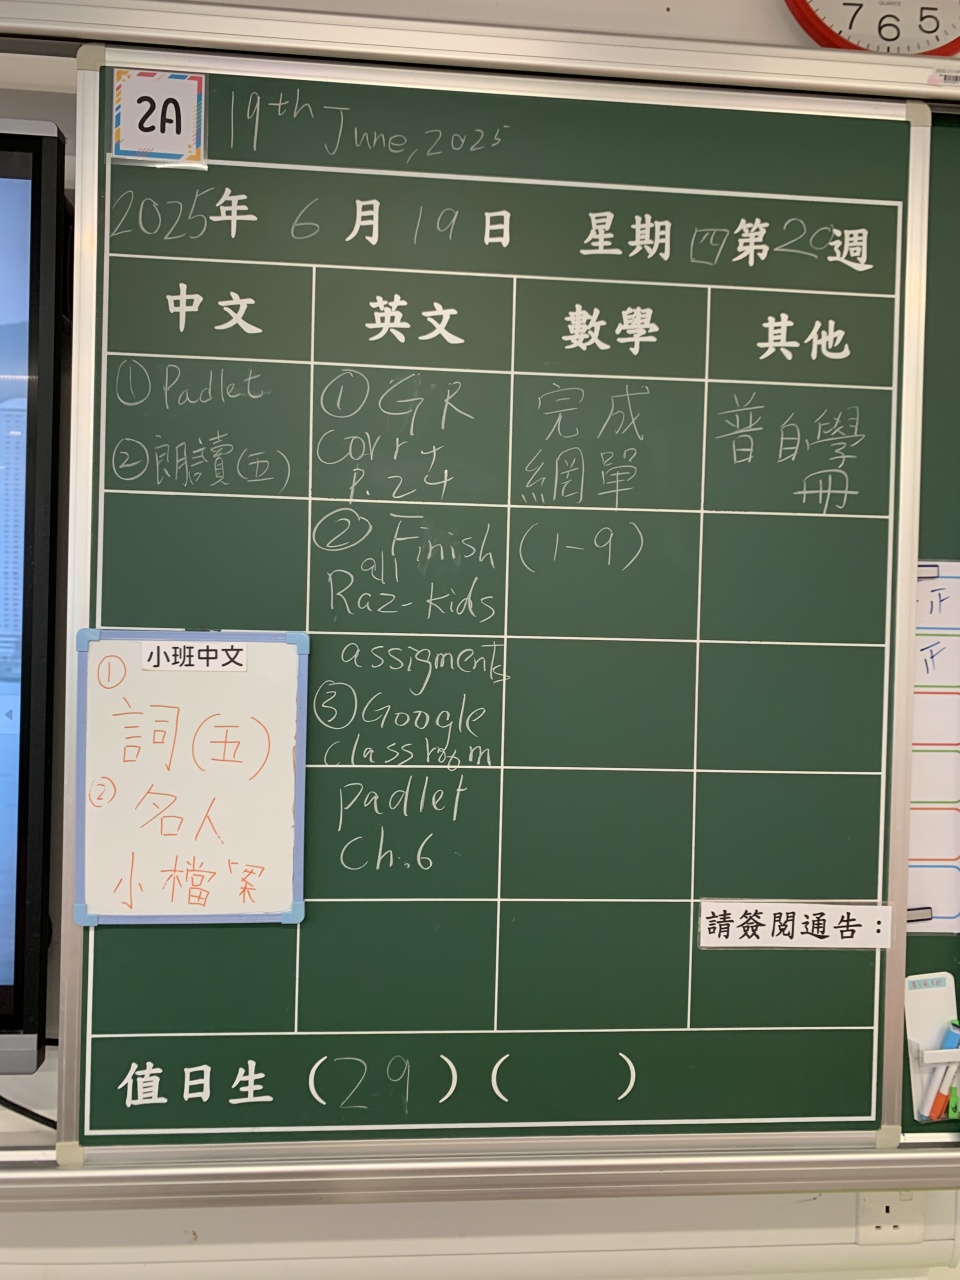 7 6 5
QUARTZ
2A
19th June, 2025
2025年 6月19日 星期四第20週
中文
英文
數學
其他
①Padlet
②朗讀(五)
①GR
Corr +
P.24
②Finish
all
Raz-kids
assigments
③Google
classroom
padlet
Ch.6
完成
網單
(1-9)
普自學
冊
小班中文
①
詞(五)
②
名人
小檔案
請簽閱通告：
值日生（29）（ ）
正
正